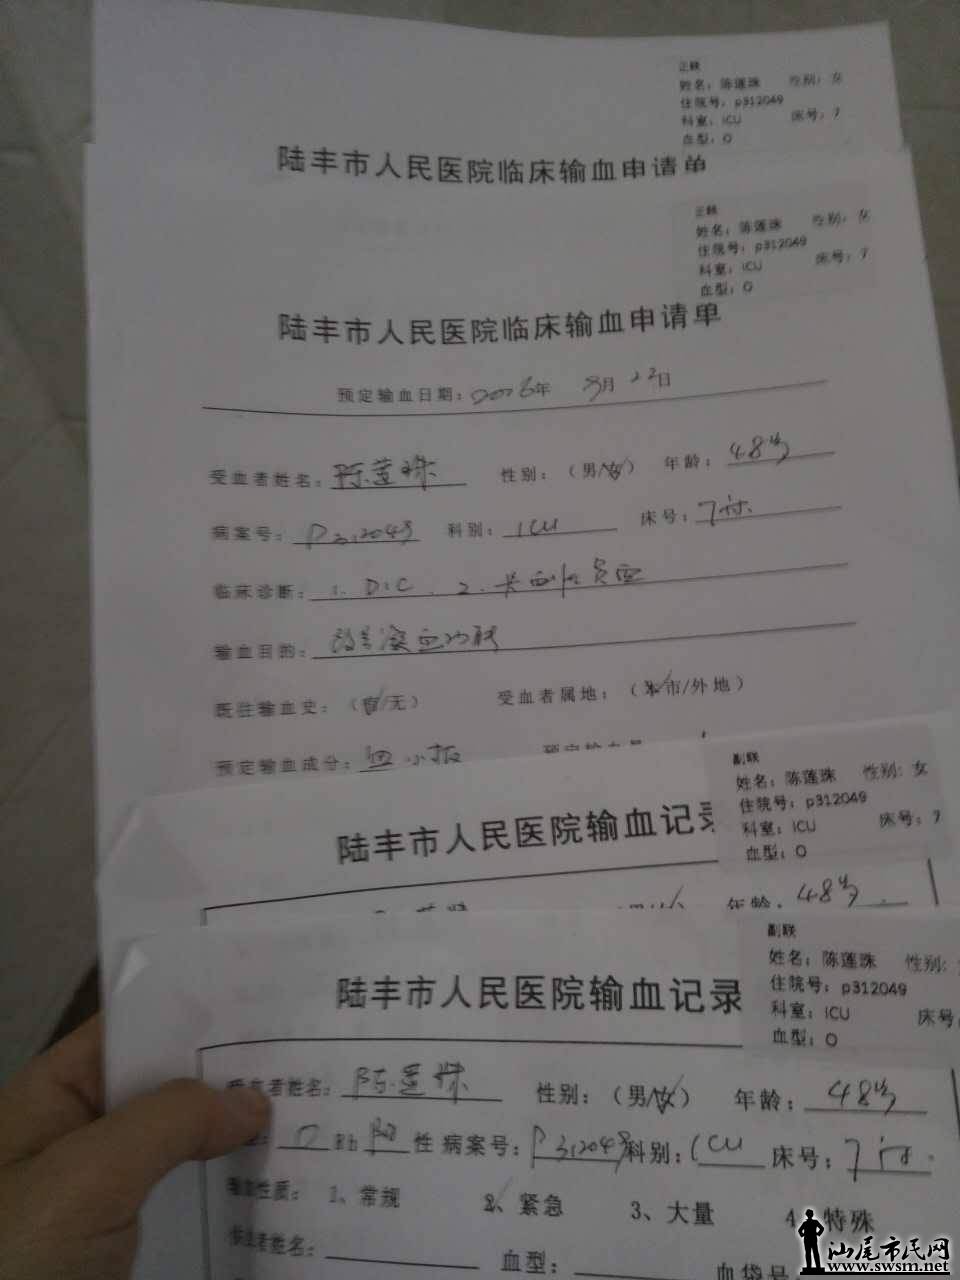 正联
姓名：陈莲珠 性别：女
住院号：p312049
科室：ICU 床号：7
血型：O
陆丰市人民医院临床输血申请单
正联
姓名：陈莲珠 性别：女
住院号：p312049
科室：ICU 床号：7
血型：O
陆丰市人民医院临床输血申请单
预定输血日期：2016年 9月 22日
受血者姓名：陈莲珠 性别：（男/女） 年龄：48岁
病案号：P312049 科别：ICU 床号：7床
临床诊断：1. DIC. 2. 失血性贫血
输血目的：改善凝血功能
既往输血史：（有/无） 受血者属地：（本市/外地）
预定输血成分：血小板
副联
姓名：陈莲珠 性别：女
住院号：p312049
科室：ICU 床号：7
血型：O
陆丰市人民医院输血记录
年龄：48岁
副联
姓名：陈莲珠 性别：
住院号：p312049
科室：ICU 床号
血型：O
陆丰市人民医院输血记录
受血者姓名：陈莲珠 性别：（男/女） 年龄：48岁
O Rh 阳 性 病案号：P312049 科别：ICU 床号：7床
输血性质： 1、常规 2、紧急 3、大量 4、特殊
供血者姓名： 血型： 血袋号
汕尾市民网
www.swsm.net